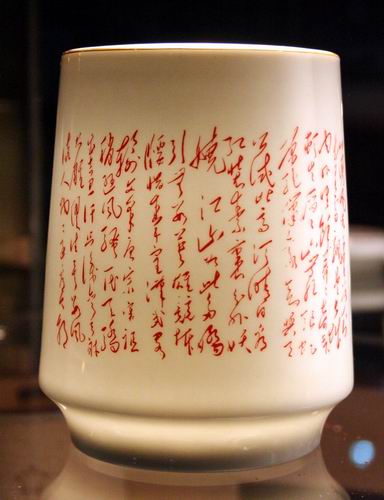 内外惟余莽莽大河上下
顿失滔滔山舞银蛇
原驰腊象欲与天
公试比高须晴日看
红装素裹分外妖
娆 江山如此多娇
引无数英雄竞折
腰惜秦皇汉武略
输文采唐宗宋祖
稍逊风骚一代天骄
成吉思汗只识弯弓射
大雕俱往矣数风
流人物还看今朝